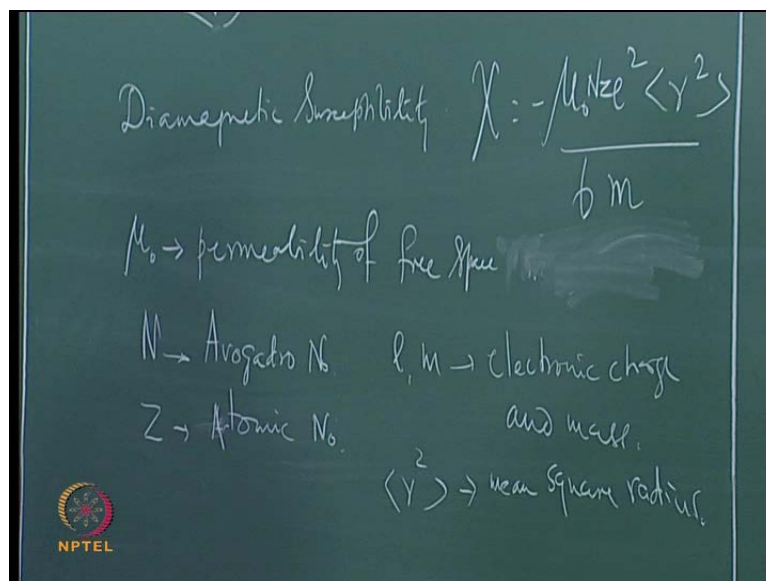 Diamagnetic Susceptibility. χ = - μ₀Nze² <r²> / 6m
μ₀ → permeability of free space
N → Avogadro No. e, m → electronic charge
and mass.
Z → Atomic No.
<r²> → mean square radius.
NPTEL